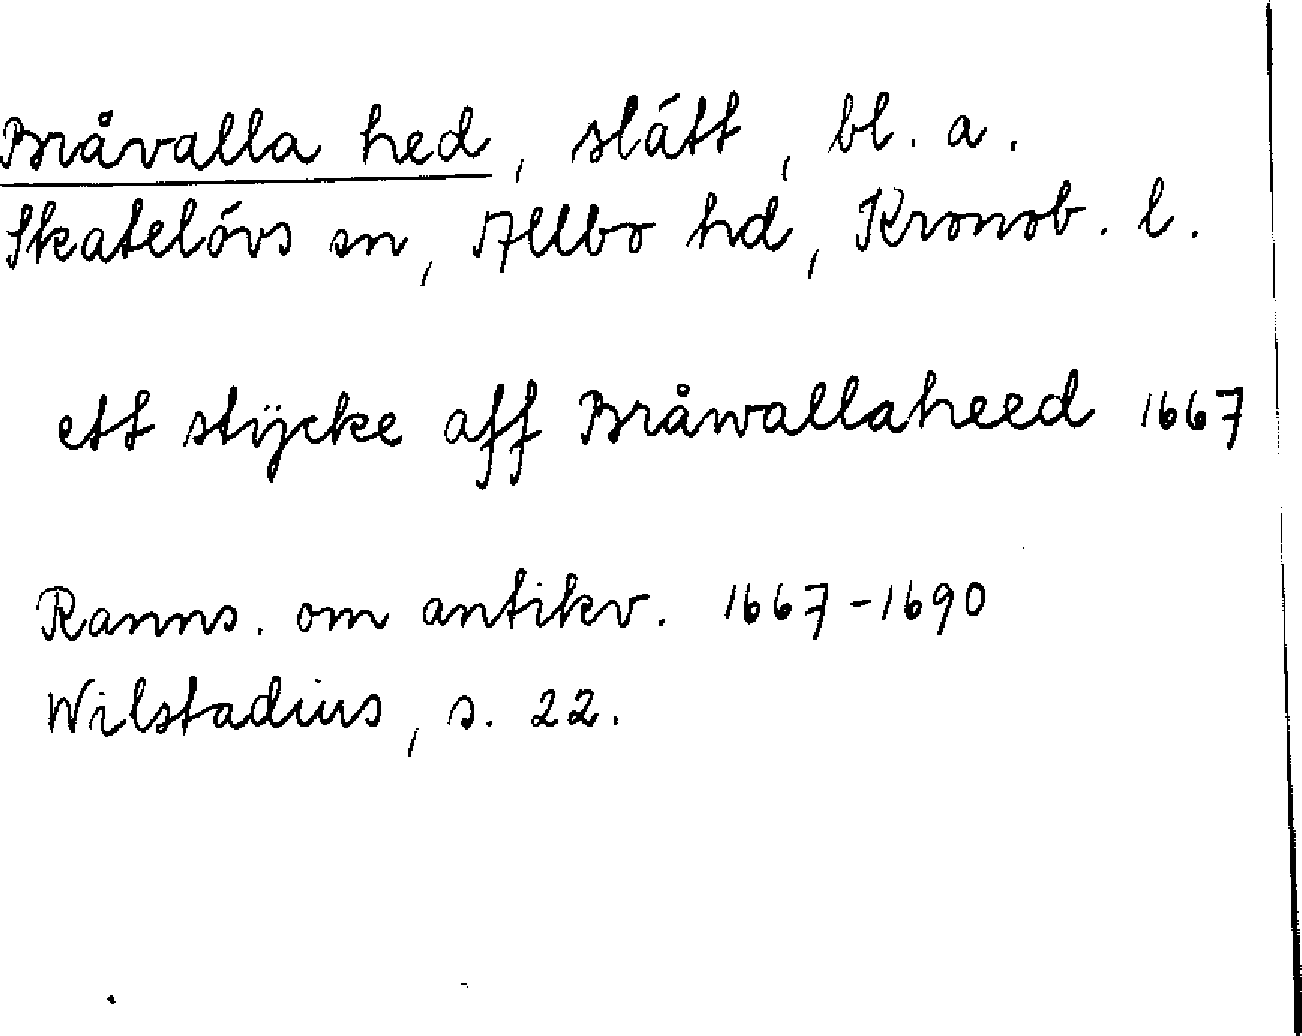 Bråvalla hed, slätt, bl. a.
Skatelövs sn, Allbo hd, Kronob. l.
ett stÿcke aff Bråwallaheed 1667
Ranns. om antikv. 1667-1690
Wilstadius, s. 22.